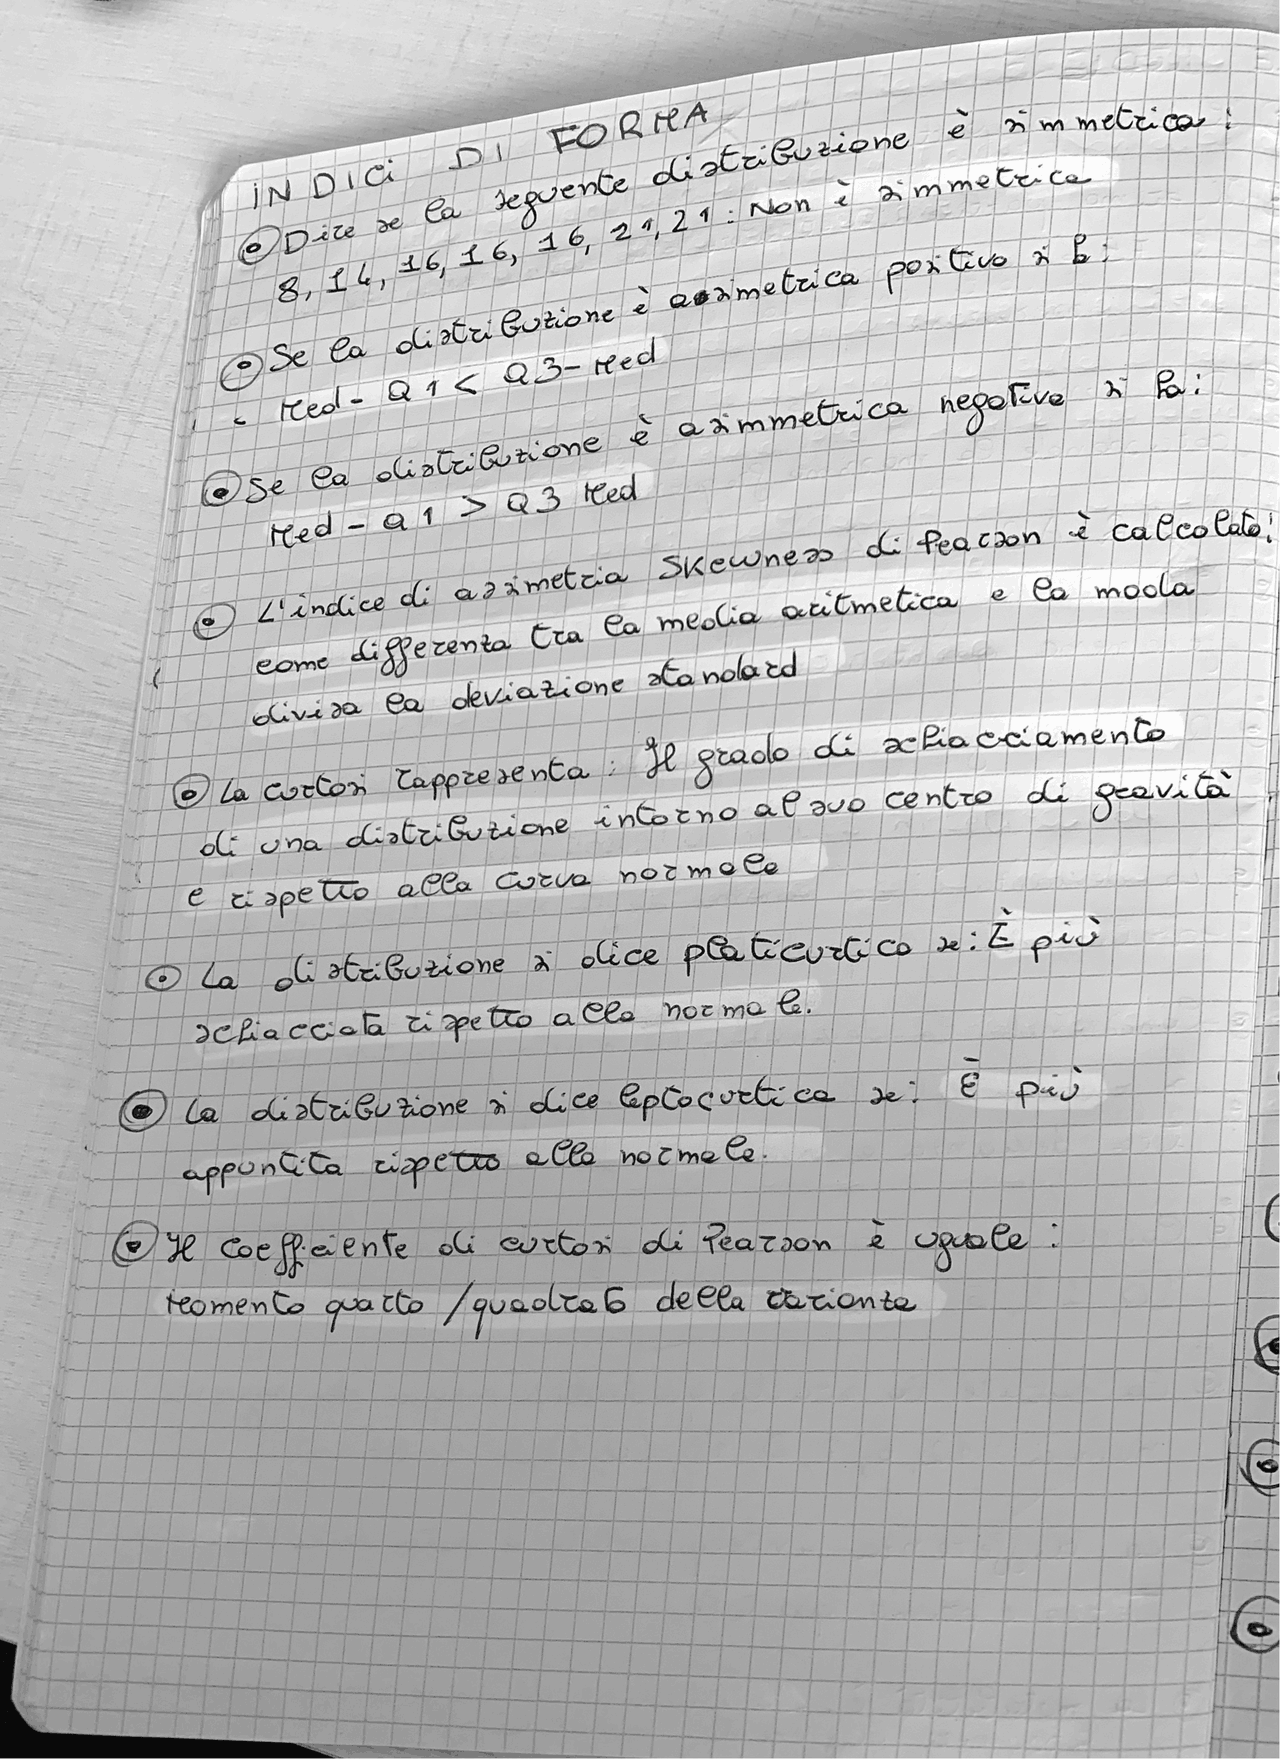 INDICI DI FORMA
Dire se la seguente distribuzione è simmetrica:
8, 14, 16, 16, 16, 21, 21: Non è simmetrica
Se la distribuzione è assimetrica positiva si ha:
Med - Q1 < Q3 - Med
Se la distribuzione è asimmetrica negativa si ha:
Med - Q1 > Q3 Med
L'indice di assimetria Skewness di Pearson è calcolato:
come differenza tra la media aritmetica e la moda
divisa la deviazione standard
La curtosi rappresenta: Il grado di schiacciamento
di una distribuzione intorno al suo centro di gravità
e rispetto alla curva normale
La distribuzione si dice platicurtica se: È più
schiacciata rispetto alla normale.
La distribuzione si dice leptocurtica se: È più
appuntita rispetto alla normale.
Il coefficiente di curtosi di Pearson è uguale:
Momento quarto / quadrato della varianza